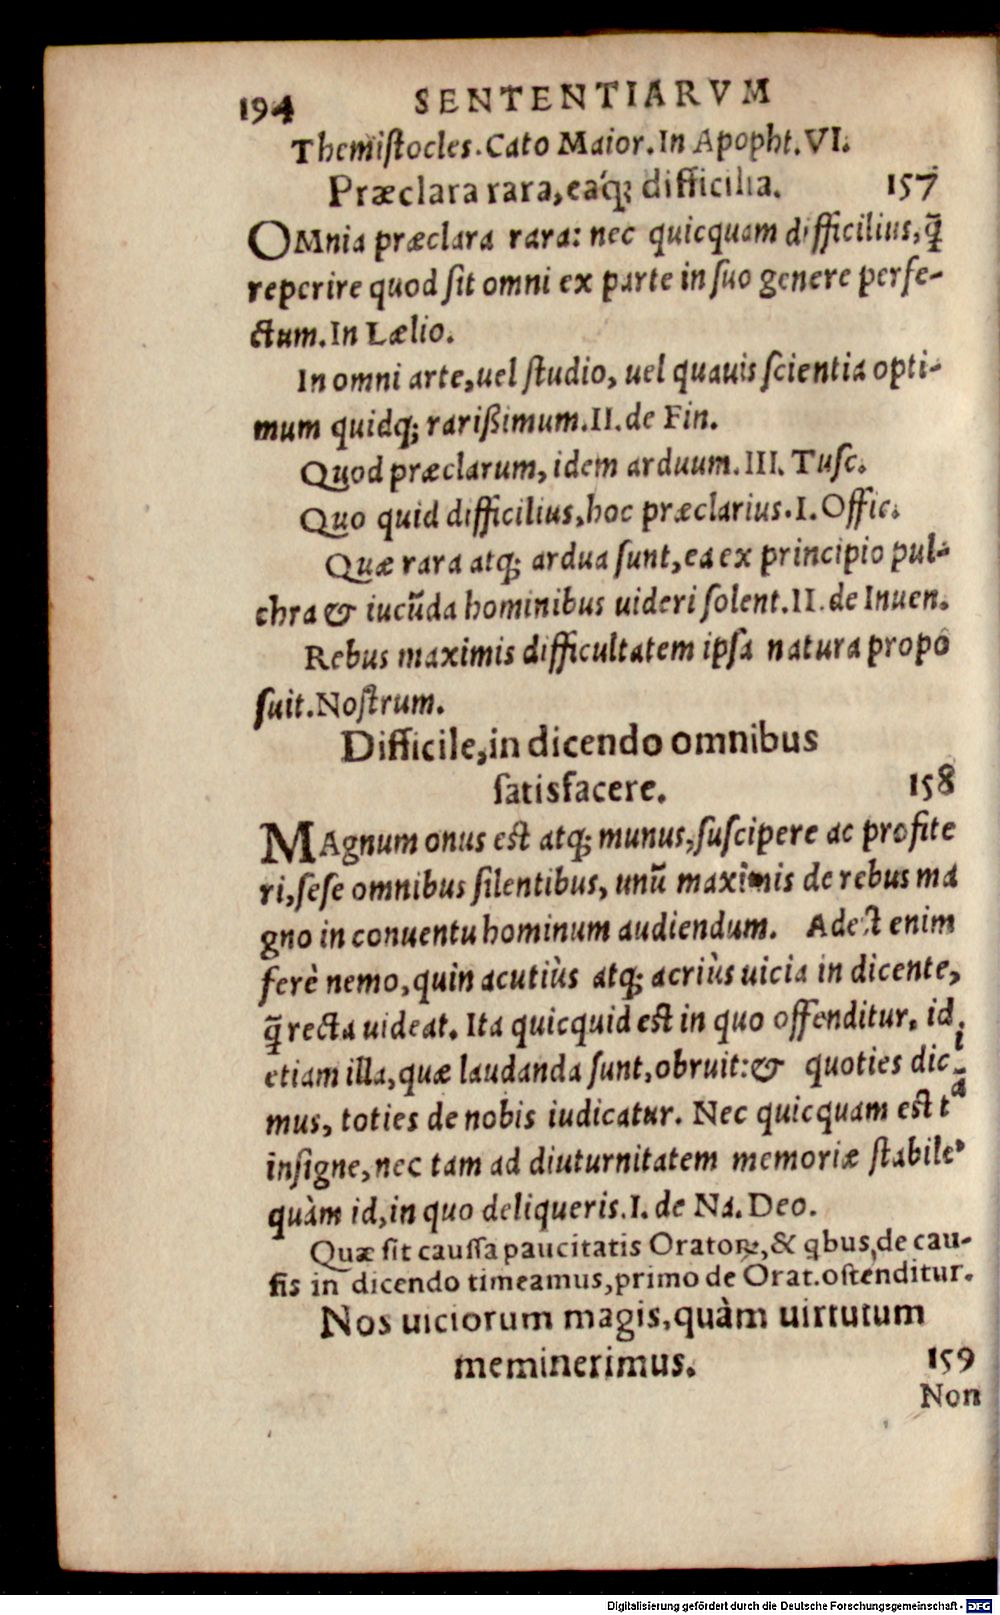 194 SENTENTIARVM
Themiſtocles. Cato Maior. In Apopht. VI.
Præclara rara, eáq; difficilia. 157
OMnia præclara rara: nec quicquam difficilius, q̃
reperire quod ſit omni ex parte in ſuo genere perfe-
ctum. In Lælio.
In omni arte, uel ſtudio, uel quauis ſcientia opti-
mum quidq; rarißimum. II. de Fin.
Quod præclarum, idem arduum. III. Tuſc.
Quo quid difficilius, hoc præclarius. I. Offic.
Quæ rara atq; ardua ſunt, ea ex principio pul-
chra & iucũda hominibus uideri ſolent. II. de Inuen.
Rebus maximis difficultatem ipſa natura propo
ſuit. Noſtrum.
Difficile, in dicendo omnibus
ſatisfacere. 158
MAgnum onus eſt atq; munus, ſuſcipere ac profite
ri, ſeſe omnibus ſilentibus, unũ maximis de rebus ma
gno in conuentu hominum audiendum. Adeſt enim
ferè nemo, quin acutiùs atq; acriùs uicia in dicente,
q̃ recta uideat. Ita quicquid eſt in quo offenditur, id
etiam illa, quæ laudanda ſunt, obruit: & quoties dici-
mus, toties de nobis iudicatur. Nec quicquam eſt tã
inſigne, nec tam ad diuturnitatem memoriæ ſtabile,
quàm id, in quo deliqueris. I. de Na. Deo.
Quæ ſit cauſſa paucitatis Oratorꝝ, & qbus de cau-
ſis in dicendo timeamus, primo de Orat. oſtenditur.
Nos uiciorum magis, quàm uirtutum
meminerimus. 159
Non
Digitalisierung gefördert durch die Deutsche Forschungsgemeinschaft - DFG